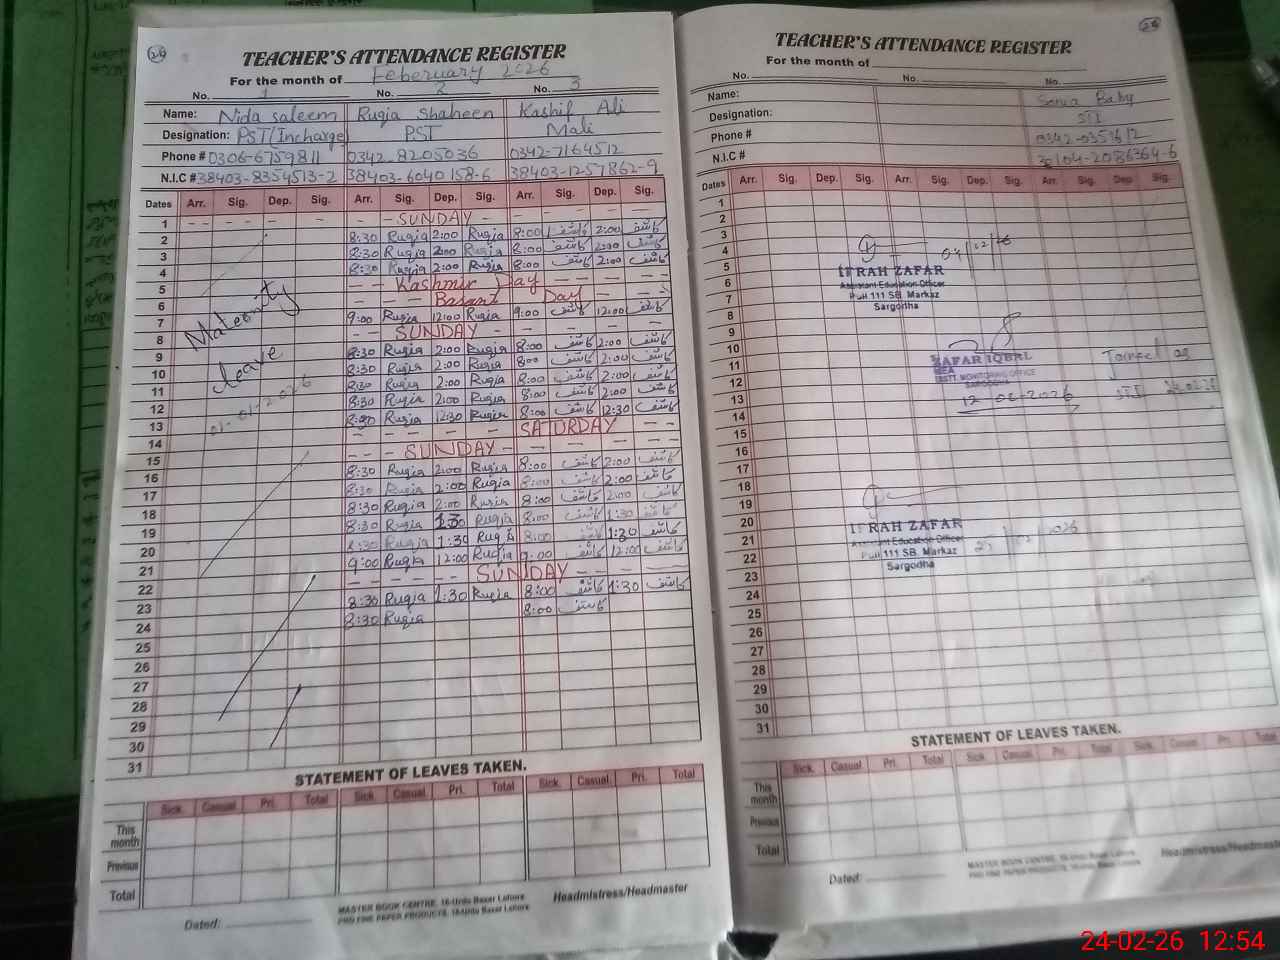 24
TEACHER'S ATTENDANCE REGISTER
For the month of Feberuary 2026
No. 1 No. 2 No. 3
Name: Nida saleem Ruqia Shaheen Kashif Ali
Designation: PST(Incharge) PST Mali
Phone # 0306-6759811 0342-8205036 0342-7164512
N.I.C # 38403-8354513-2 38403-6040158-6 38403-1257862-9
Dates Arr. Sig. Dep. Sig. Arr. Sig. Dep. Sig. Arr. Sig. Dep. Sig.
1 SUNDAY
2 8:30 Ruqia 2:00 Ruqia 8:00 کاشف 2:00 کاشف
3 8:30 Ruqia 2:00 Ruqia 8:00 کاشف 2:00 کاشف
4 8:30 Ruqia 2:00 Ruqia 8:00 کاشف 2:00 کاشف
5 Kashmir Day
6 Basant Day
7 9:00 Ruqia 12:00 Ruqia 9:00 کاشف 12:00 کاشف
8 SUNDAY
9 8:30 Ruqia 2:00 Ruqia 8:00 کاشف 2:00 کاشف
10 8:30 Ruqia 2:00 Ruqia 8:00 کاشف 2:00 کاشف
11 8:30 Ruqia 2:00 Ruqia 8:00 کاشف 2:00 کاشف
12 8:30 Ruqia 2:00 Ruqia 8:00 کاشف 2:00 کاشف
13 8:30 Ruqia 12:30 Ruqia 8:00 کاشف 12:30 کاشف
14 SATURDAY
15 SUNDAY
16 8:30 Ruqia 2:00 Ruqia 8:00 کاشف 2:00 کاشف
17 8:30 Ruqia 2:00 Ruqia 8:00 کاشف 2:00 کاشف
18 8:30 Ruqia 2:00 Ruqia 8:00 کاشف 2:00 کاشف
19 8:30 Ruqia 1:30 Ruqia 8:00 کاشف 1:30 کاشف
20 8:30 Ruqia 1:30 Ruqia 8:00 کاشف 1:30 کاشف
21 9:00 Ruqia 12:00 Ruqia 9:00 کاشف 12:00 کاشف
22 SUNDAY
23 8:30 Ruqia 1:30 Ruqia 8:00 کاشف 1:30 کاشف
24 8:30 Ruqia 8:00 کاشف
25
26
27
28
29
30
31
Maternity
leave
01-01-2026
STATEMENT OF LEAVES TAKEN.
Sick. Casual. Pri. Total Sick. Casual. Pri. Total Sick. Casual. Pri. Total
This month
Previous
Total
MASTER BOOK CENTRE, 16-Urdu Bazar Lahore
PRO FINE PAPER PRODUCTS, 16-Urdu Bazar Lahore
Headmistress/Headmaster
Dated:
24
TEACHER'S ATTENDANCE REGISTER
For the month of
No. No. No.
Name: Sonia Baby
Designation: STI
Phone #
N.I.C #
Dates Arr. Sig. Dep. Sig. Arr. Sig. Dep. Sig. Arr. Sig. Dep. Sig.
1
2
3
4
5
6
7
8
9
10
11
12
13
14
15
16
17
18
19
20
21
22
23
24
25
26
27
28
29
30
31
IFRAH ZAFAR
Assistant Education Officer
Pull 111 SB. Markaz
Sargodha
ZAFAR IQBAL
MEA
DISTT. MONITORING OFFICE
SARGODHA
12-02-2026
IFRAH ZAFAR
Assistant Education Officer
Pull 111 SB. Markaz
Sargodha
STATEMENT OF LEAVES TAKEN.
Sick. Casual. Pri. Total Sick. Casual. Pri. Total Sick. Casual. Pri. Total
This month
Previous
Total
MASTER BOOK CENTRE, 16-Urdu Bazar Lahore
PRO FINE PAPER PRODUCTS, 16-Urdu Bazar Lahore
Dated:
24-02-26 12:54